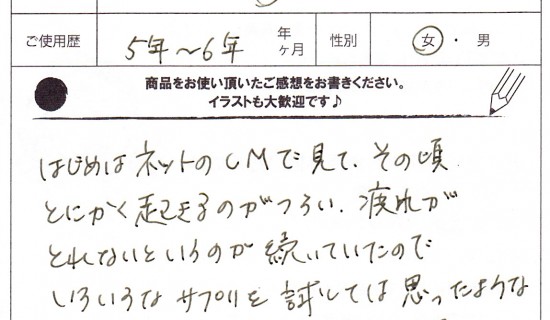 ご使用歴 5年～6年 年ヶ月 性別 女・男
商品をお使い頂いたご感想をお書きください。
イラストも大歓迎です♪
はじめはネットのCMで見て、その頃
とにかく起きるのがつらい、疲れが
とれないというのが続いていたので
いろいろなサプリを試しては思ったような